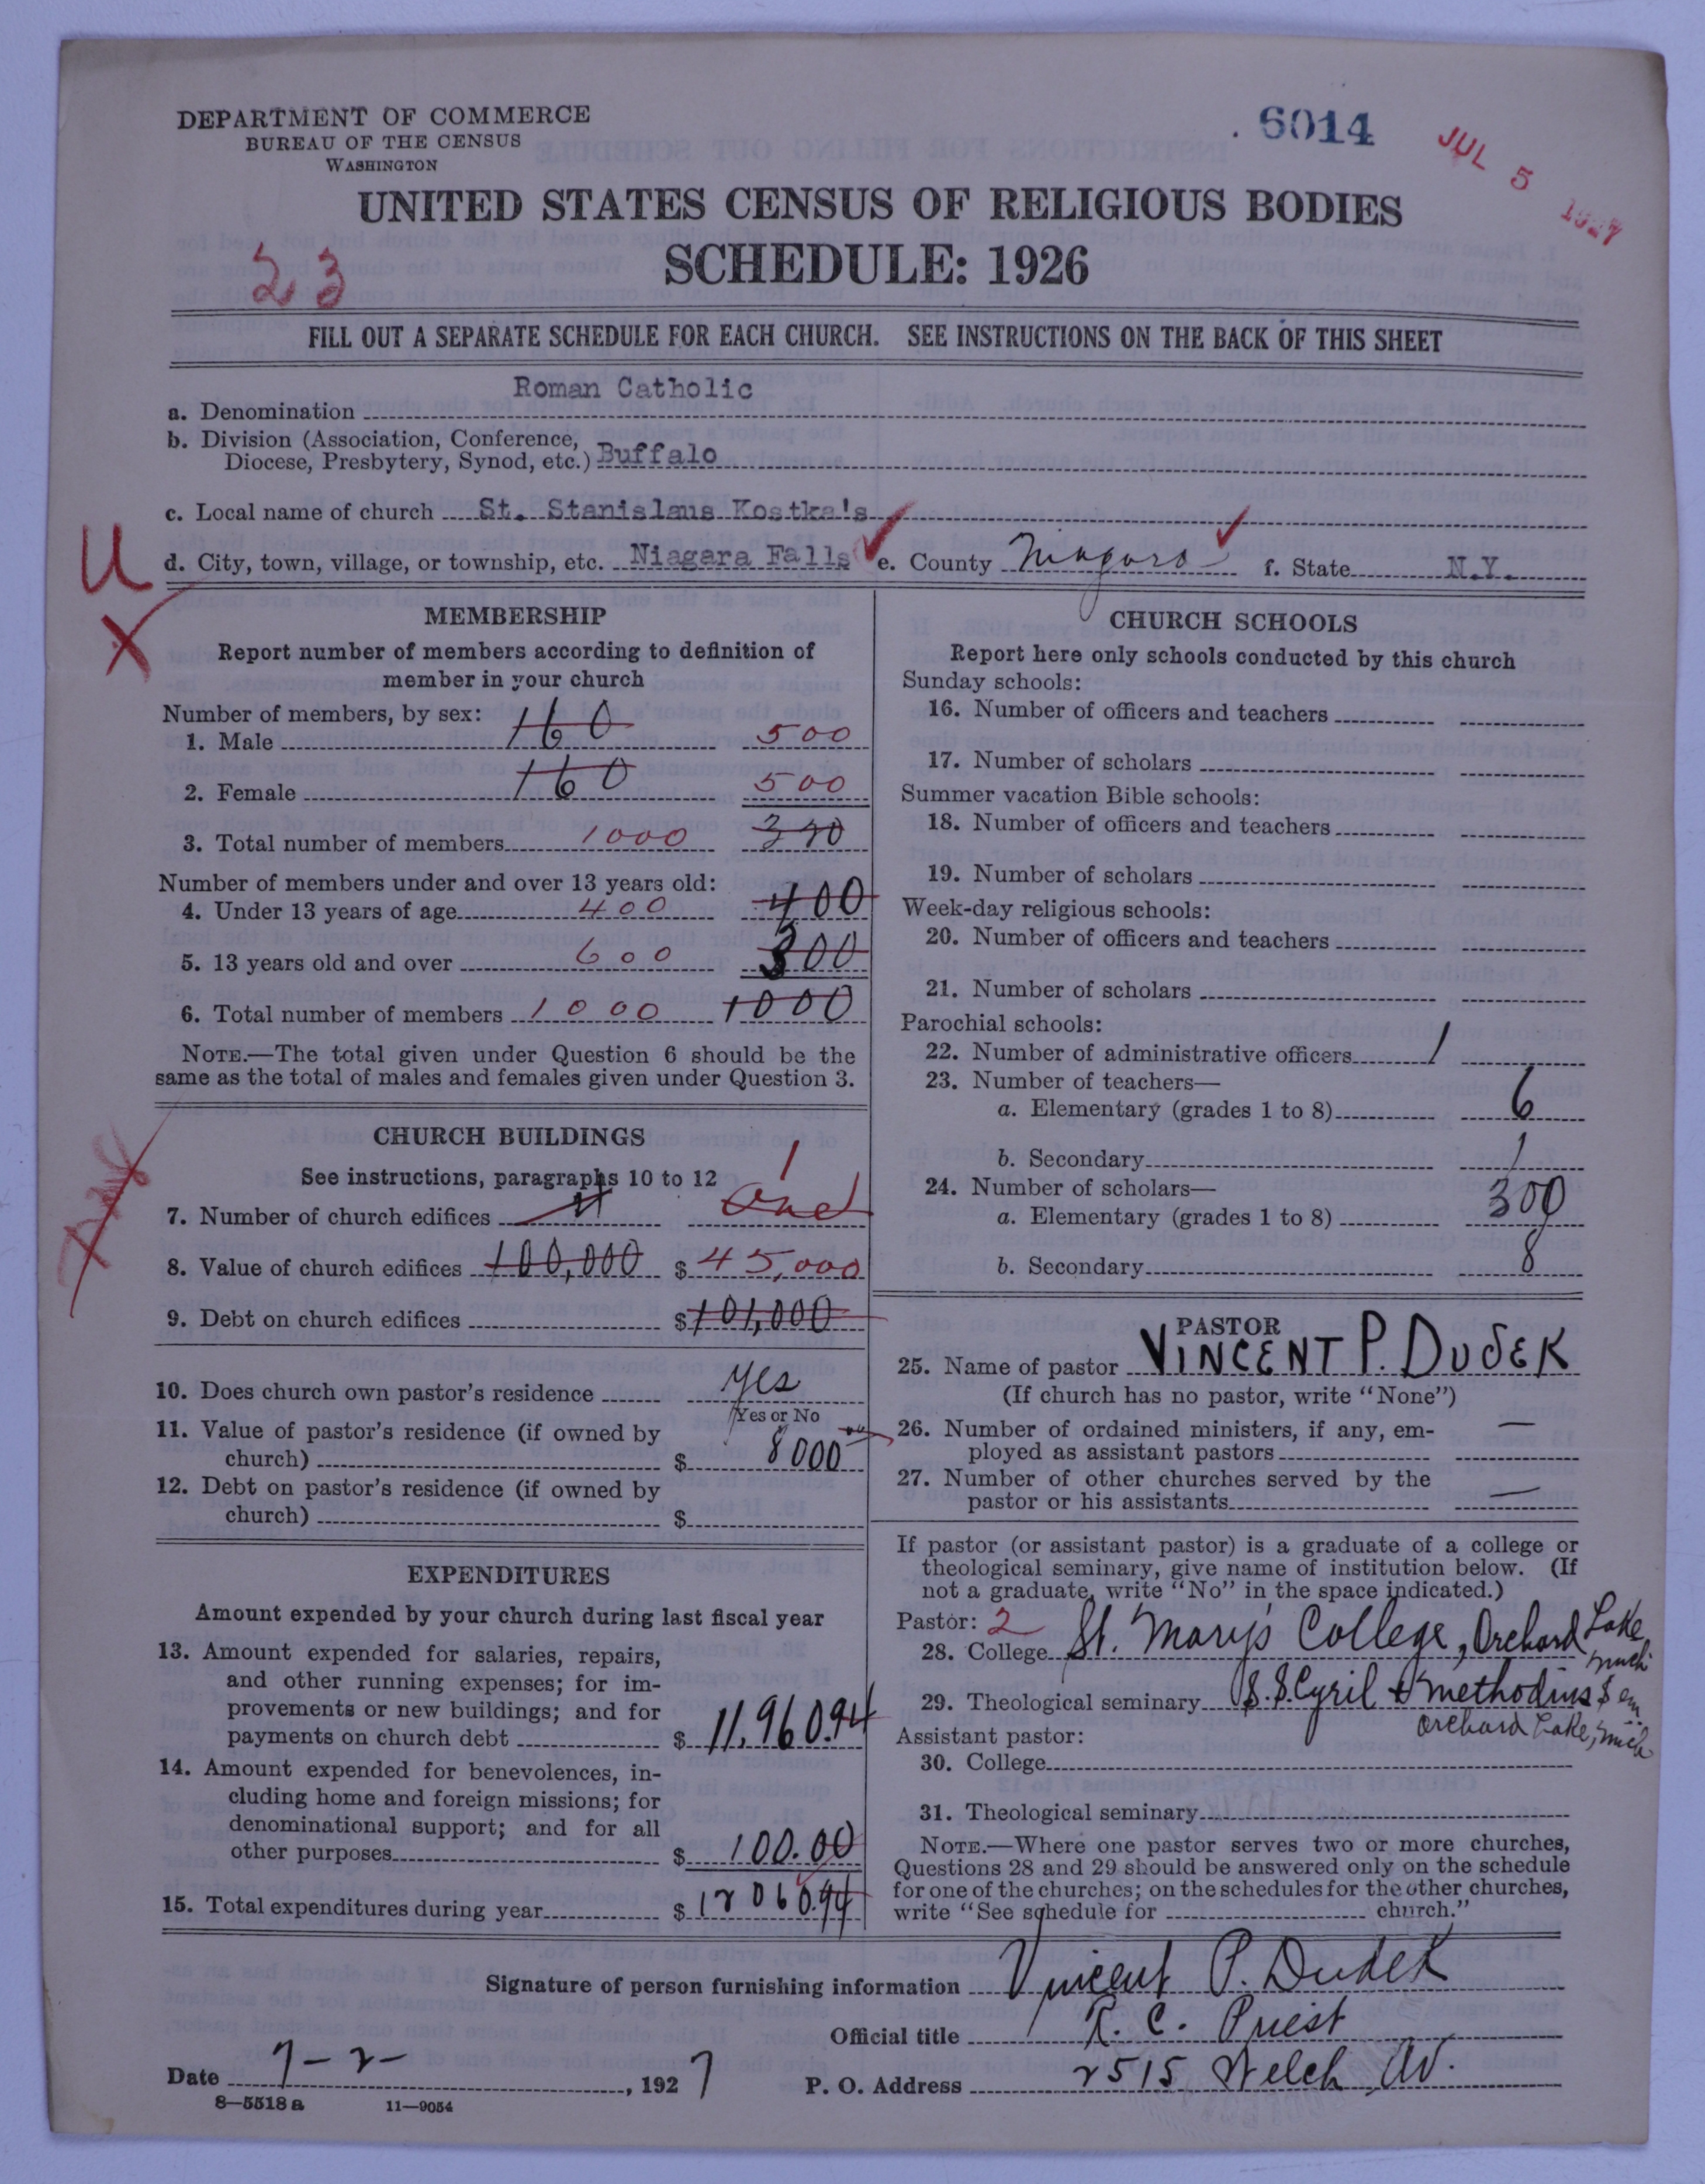 DEPARTMENT OF COMMERCE
BUREAU OF THE CENSUS
WASHINGTON
6014
JUL 5 1927
UNITED STATES CENSUS OF RELIGIOUS BODIES
SCHEDULE: 1926
23
FILL OUT A SEPARATE SCHEDULE FOR EACH CHURCH. SEE INSTRUCTIONS ON THE BACK OF THIS SHEET
a. Denomination Roman Catholic
b. Division (Association, Conference,
Diocese, Presbytery, Synod, etc.) Buffalo
c. Local name of church St. Stanislaus Kostka's
U
d. City, town, village, or township, etc. Niagara Falls e. County Niagara f. State N.Y.
X
MEMBERSHIP
Report number of members according to definition of
member in your church
Number of members, by sex:
1. Male 160 500
2. Female 160 500
3. Total number of members 1000 320
Number of members under and over 13 years old:
4. Under 13 years of age 400 400
5. 13 years old and over 600 300
6. Total number of members 1000 1000
NOTE.—The total given under Question 6 should be the
same as the total of males and females given under Question 3.
CHURCH BUILDINGS
See instructions, paragraphs 10 to 12
1
7. Number of church edifices One
8. Value of church edifices 100,000 $ 45,000
9. Debt on church edifices $ 101,000
10. Does church own pastor's residence yes
Yes or No
11. Value of pastor's residence (if owned by
church) $ 8000
12. Debt on pastor's residence (if owned by
church) $
EXPENDITURES
Amount expended by your church during last fiscal year
13. Amount expended for salaries, repairs,
and other running expenses; for im-
provements or new buildings; and for
payments on church debt $ 11,960.94
14. Amount expended for benevolences, in-
cluding home and foreign missions; for
denominational support; and for all
other purposes $ 100.00
15. Total expenditures during year $ 12060.94
CHURCH SCHOOLS
Report here only schools conducted by this church
Sunday schools:
16. Number of officers and teachers
17. Number of scholars
Summer vacation Bible schools:
18. Number of officers and teachers
19. Number of scholars
Week-day religious schools:
20. Number of officers and teachers
21. Number of scholars
Parochial schools:
22. Number of administrative officers 1
23. Number of teachers—
a. Elementary (grades 1 to 8) 6
b. Secondary 1
24. Number of scholars—
a. Elementary (grades 1 to 8) 300
b. Secondary 8
PASTOR
25. Name of pastor VINCENT P. DUDEK
(If church has no pastor, write "None")
26. Number of ordained ministers, if any, em-
ployed as assistant pastors —
27. Number of other churches served by the
pastor or his assistants —
If pastor (or assistant pastor) is a graduate of a college or
theological seminary, give name of institution below. (If
not a graduate, write "No" in the space indicated.)
Pastor: 2
28. College St. Mary's College, Orchard Lake, Mich
29. Theological seminary S.S. Cyril & Methodius Sem
Orchard Lake, Mich
Assistant pastor:
30. College
31. Theological seminary
NOTE.—Where one pastor serves two or more churches,
Questions 28 and 29 should be answered only on the schedule
for one of the churches; on the schedules for the other churches,
write "See schedule for church."
Signature of person furnishing information Vincent P. Dudek
Official title R. C. Priest
Date 7-2-, 1927 P. O. Address 2515 Welch Av.
8—5518 a 11—9054